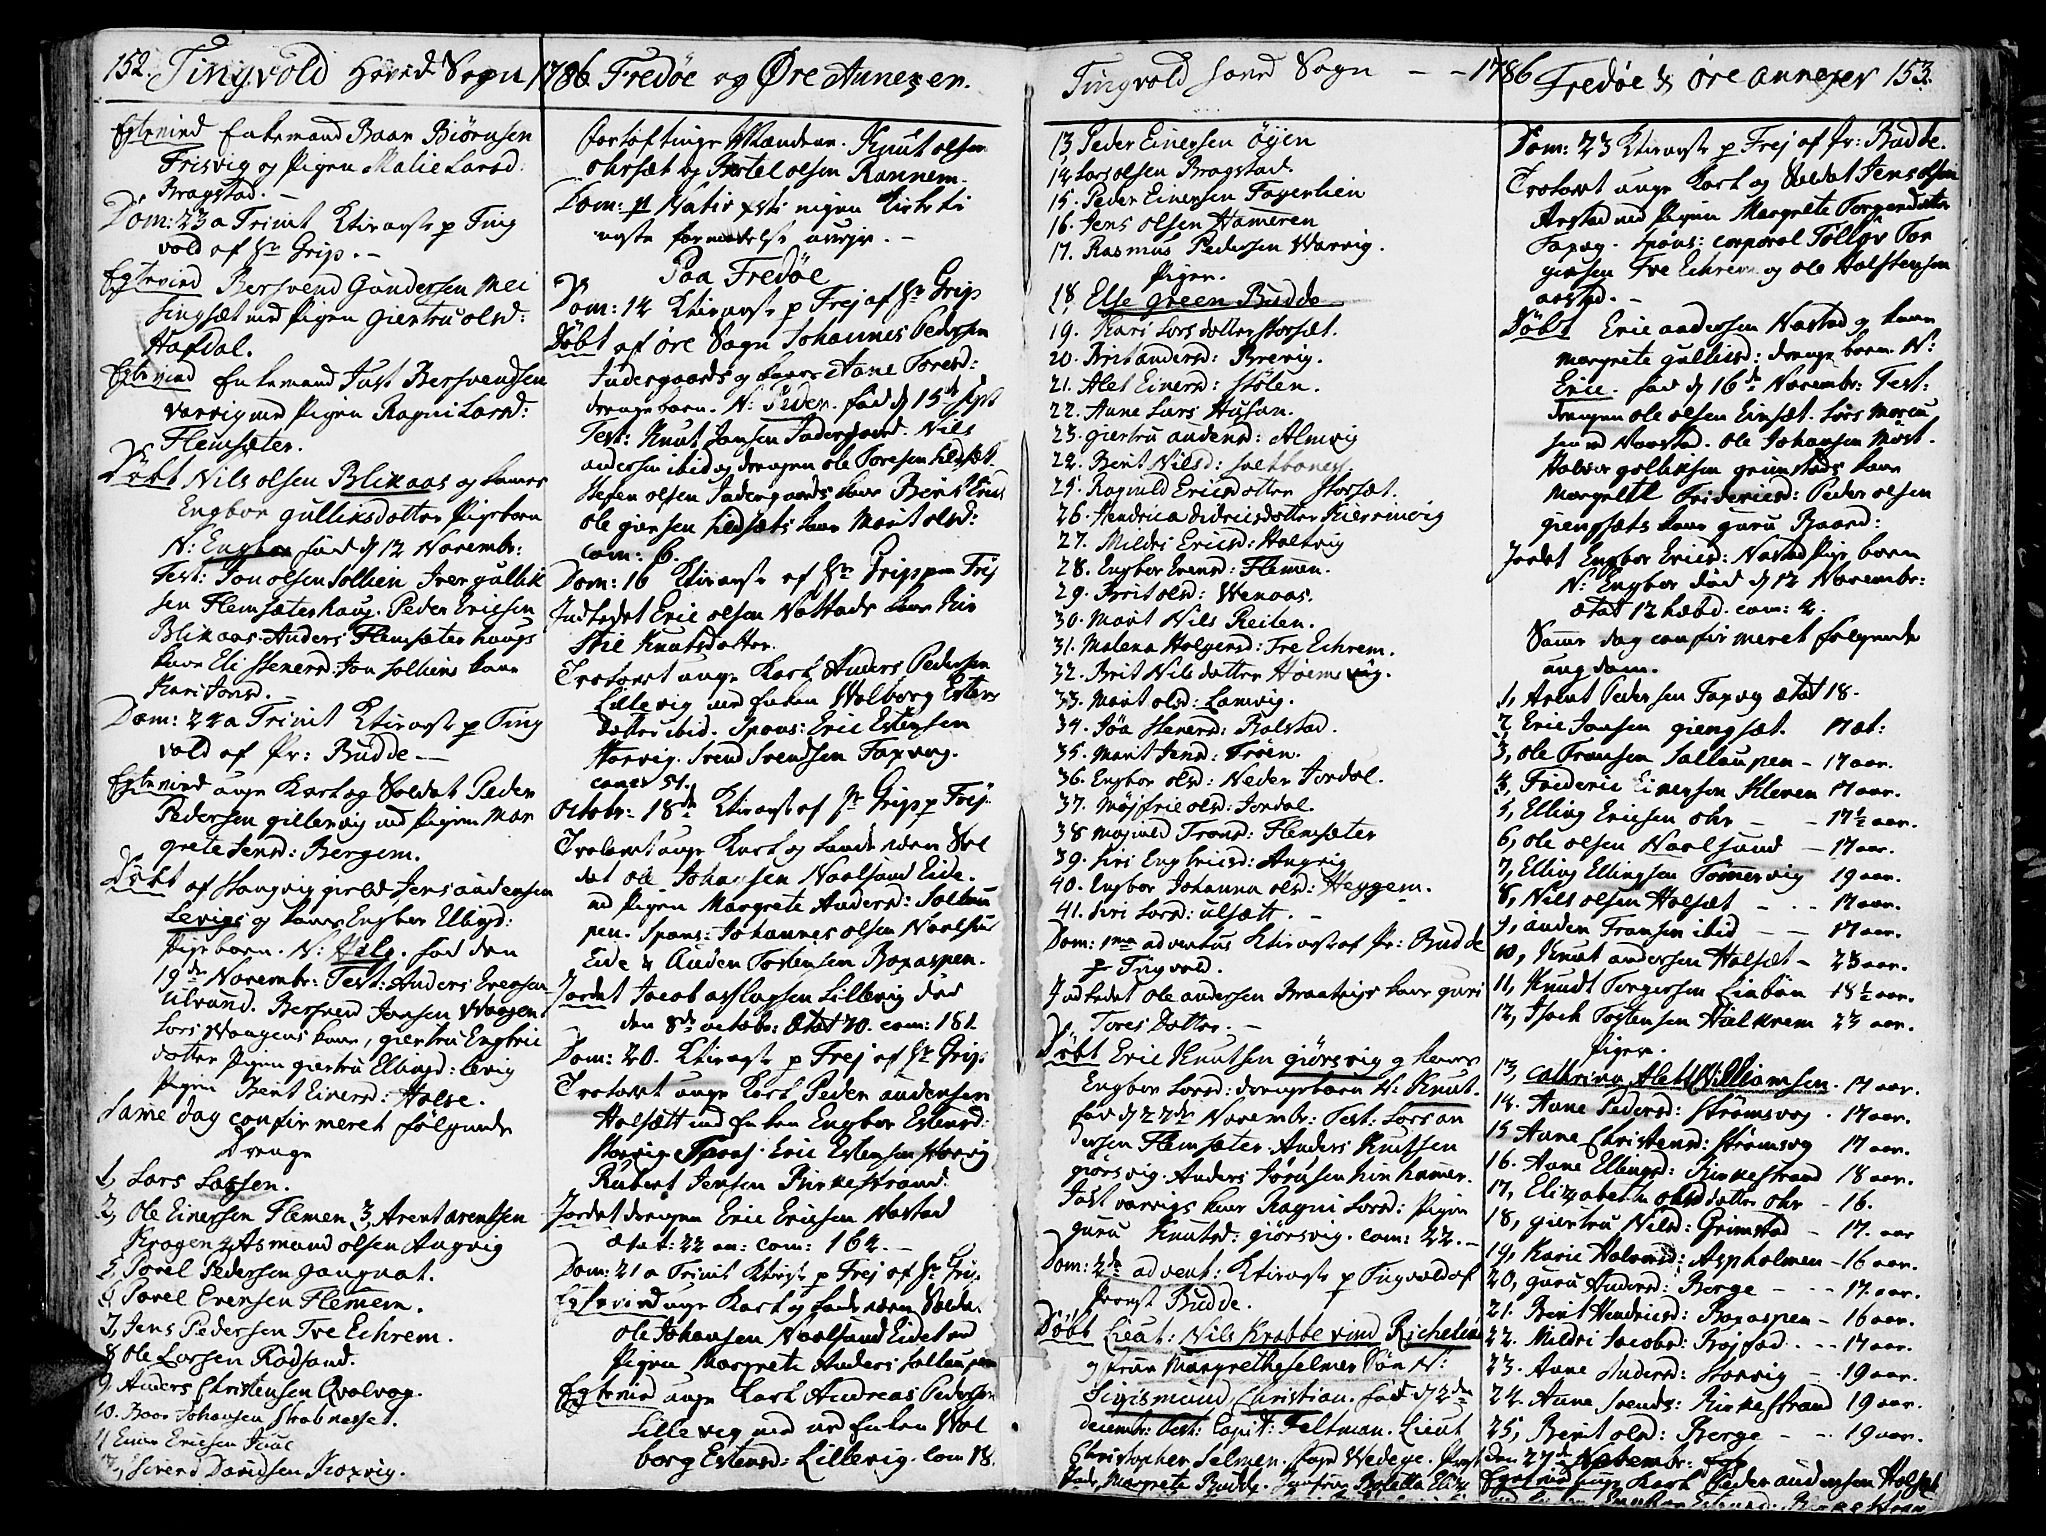 152. Tingvold Hoved Sogn 1786. Fredøe og Øre Annexer.
Egteviede Enkemand Baar Biørnsen
Frisvig og Pigen Malie Larsd:
Bragstad. —
Dom: 23 a Trinit
vold af Hr Grip. —
Egteviede Bersvend Gundersen Mei
singsæt med Pigen Giertru olsd:
Hafdal.
Egteviede Enkemand Just Bersvendsen
Varvig med Pigen Ragni Larsd:
Flemsæter.
Døbt Nils olsen Blikaas og hanes
Engbor gulliksdotter Pigebarn
N: Engbor fød d 12 Novembr:
Test: Jon olsen Sollien Iver gullik
sen Flemsæterhaug. Peder Ericsen
Blikaas. Anders Flemsæterhaugs
kone Eli Stenersd: Jon Solliens kone
Kari Jonsd.
Dom: 24 a Trinit p Ting
vold af Pr: Budde —
Egteviede unge Karl og Soldat Peder
Pedersen gillervig med Pigen Mar
grete Jensd: Bergem.
Døbt af Stangvig gield Jens andersen
Levigs og hanes Engbor Ellingd:
Pigebarn. N: fød den
19de Novembr: Test: Anders Evensen
Ulvund. Bersvend Jensen Waagen
Lars Waagens kone, giertru Engbric
dotter Pigen giertru Ellingd: Levig
Pigen Berit Einersd: Halse.
Same dag confirmeret følgende
Drenge
1, Lars Larsen.
2, Ole Einersen Flemen 3, Arent arentsen
Kragen 4 Asmund olsen Angvig
5, Povel Pedersen Gangnat.
6, Povel Evensen Flemem.
7, Jens Pedersen Tre Echrem.
8 Ole Larsen Rodsand.
9 Anders Christensen Qvalvog.
10. Baar Johansen Stabnesset.
11 Einer Ericsen Juul
12, Sivert Davidsen Koxvig.
Forløftings Mændene. Knut olsen
ohrsæt og Bertel olsen Rannem.
Dom: p Nativ xsti ingen Kirke ti
eneste formedelst uveyr. —
Paa Fredøe
Dom: 14 p Frej af Hr Grip
Døbt af øre Sogn Johannes Pedersen
Indergaards og hanes Ane Toresd:
drengebarn. N: Peder. fød d 15de Sept
Test: Knut Jonsen Indergaard. Nils
andersen ibid og drengen ole Toresen
Stefen olsen Indergaards kone Berit
ole giersen kone Marit olsd:
com: 6.
Dom: 16 af Hr Grip paa Frej
Indledet Eric olsen Nastads kone
Knutsdotter.
Trolovet unge Karl Anders Pedersen
Lillevig med Enken Wolborg Estens
Dotter ibid. Spons: Eric Estensen
Storvig. Svend Svendsen Faxvog.
comes 51.
Octobr: 18de af Hr Grip p Frej.
Trolovet unge Karl og Landeværn Sol
dat ole Johansen Naalsund Eide.
med Pigen Margrete Andersd: Sallau
pen. Spons: Johannes olsen Naalsun
Eide & Auden Tostensen Boxaspen.
Jordet Jacob Aslagsen Lillevig død
den 8de octobr: ætat 70. com: 181.
Dom: 20. p Frej af Hr Grip
Trolovet unge Karl Peder audensen
Halsætt med Enken Engbor Estensd:
Storvig. Spons: Eric Estensen Storvig
Rubert Jensen Birkestrand.
Jordet drengen Eric Ericsen Nastad
ætat: 22 an: com: 164. —
Dom: 21 a Trinit p Frej af Hr Grip.
Egteviede unge Karl og Landeværn Soldat
Ole Johansen Naalsund Eidet med
Pigen Margrete Anders Sallaupen
Egteviede unge Karl Andreas Pedersen
Lillevig med Enken Wol
borg Estensd: Lillevig. Com 18.
Tingvold Hoved Sogn — — 1786 Fredøe & Øre annexer 153.
13, Peder Einersen Øyen
14 Lars olsen Bragstad.
15. Peder Einersen Fagerlien
16. Jens olsen Hameren
17. Rasmus Pedersen Warvig.
Piger.
18, Else Green Budde
19. Kari Larsdotter Storsæt.
20. Brit andersd: Brevig.
21. Alet Einersd: Stølen.
22. Anne Lars Husan.
23. giertru audensd: Almvig
24. Berit Nilsd: Saltbones.
25. Ragnild Ericsdotter Storsæt.
26. Hendrica Didricsdotter Kiermvig
27. Mildri Ericsd: Holtvig
28. Engbor Evensd: Flemen.
29. Brit olsd: Wenaas.
30. Marit Nils Reiten.
31. Malena Holgersd: Tre Echrem.
32. Brit Nilsdotter Høiemsvig.
33. Marit olsd: Lamvig.
34. Jøa Stenersd: Balstad.
35. Marit Jensd: Trøen.
36. Engbor olsd: Neder Jordal.
37. Møjfrie olsd: Jordal.
38 Magnild Tronsd: Flemsæter
39. Siri Engbricsd: Angvig
40. Engbor Johanna olsd: Heggem.
41. Siri Larsd: ulsætt. —
Dom: 1ma adventus af Pr: Budde
p Tingvold.
Indledet Ole andersen kone guri
Tores Dotter. —
Døbt Eric Knutsen giørsvig & hanes
Engbor Larsd: drengebarn N: Knut.
fød d 27de Novembr: Test: Lars an
dersen Flemsæter. Anders Knutsen
giørsvig. Anders Jørnsen
Just Varvigs kone Ragni Larsd: Pigen
guru Knutsd: giørsvig. com: 22. —
Dom: 2da advent: p Tingvold af
Provst Budde.
Døbt Lieut: Nils Krabbe vind Richelieu
og frue Margrethe Selmer Søn N:
Sigismund Christian. fød d 2den
decembr: Test: Capit: Feltman. Lieut
Christopher Selmer. Wedege. Provst
Margrete Budde. Jomfrue Boletta Eliz
Dom: 23 p Frej af Pr: Budde.
Trolovet unge Karl og Soldat Jens olsen
Aastad med Pigen Margrete Torgersdotter
Faxvog. Spons: corporal Tollev Tor
gersen Tre Echrem og Ole Holstensen
aastad. —
Døbt Eric andersen Nastad og hanes
margrete gulliksd: drengebarn N:
Eric. fød d 16de Novembr: Test:
drengen ole olsen Einsæt. Lars Marcu
sen Naastad. Ole Johansen Møst.
Halvor gulliksen grimstads kone
Margrete Fridericsd: Peder olsen
giengsæts kone guru Baard:
Jordet Engbor Ericsd: Nastad Pige barn
N: Engbor død d 12 Novembr:
ætat 12 hebd. com: 2.
Same dag confirmeret følgende
ungdom.
1, Arent Pedersen Faxvog ætat 18.
2, Eric Jonsen giengset. 17 æt:
3, Ole Fransen Sallaupen — 17 aar.
4, Frideric Einersen Kleven 17 aar.
5, Elling Ericsen ohr — — 17½ aar.
6, Ole olsen Naalsund — 17 aar.
7, Elling Ellingsen Tømervig 19 aar.
8, Nils olsen Halsæt — — 17 aar.
9, auden Fransen ibid — — 17 aar.
10, Knut andersen Halsæt — 23 aar.
11, Knudt Torgersen Liabøn 18½ aar.
12, Isach Tostensen Hielkrem 23 aar.
Piger.
13, Cathrina Alet Williamsen. 17 aar.
14. Anne Pedersd: Strømsvog. 17 aar.
15 Anne Christensd: Strømsvog 17 aar.
16. Anne Ellingd: Birkestrand 18 aar.
17, Elizabeth olsdotter ohr — 16.
18, giertru Nilsd: Grimstad — 17. aar
19, Karie Halvorsd: Aspholmen — 16 aar.
20, guru Andersd: Berge — — 17. aar.
21. Berit Hendricsd: Boxaspen — 16 aar.
22. Mildri Jacobsd: — — 17 aar.
23. Anne Andersd: Storvig — 19 aar.
24. Anne Svends: Birkestrand 19 aar.
25, Berit olsd: Berge — — 19 aar.
Den 27de Novembr:
Egteviede unge Karl Peder audensen Halset